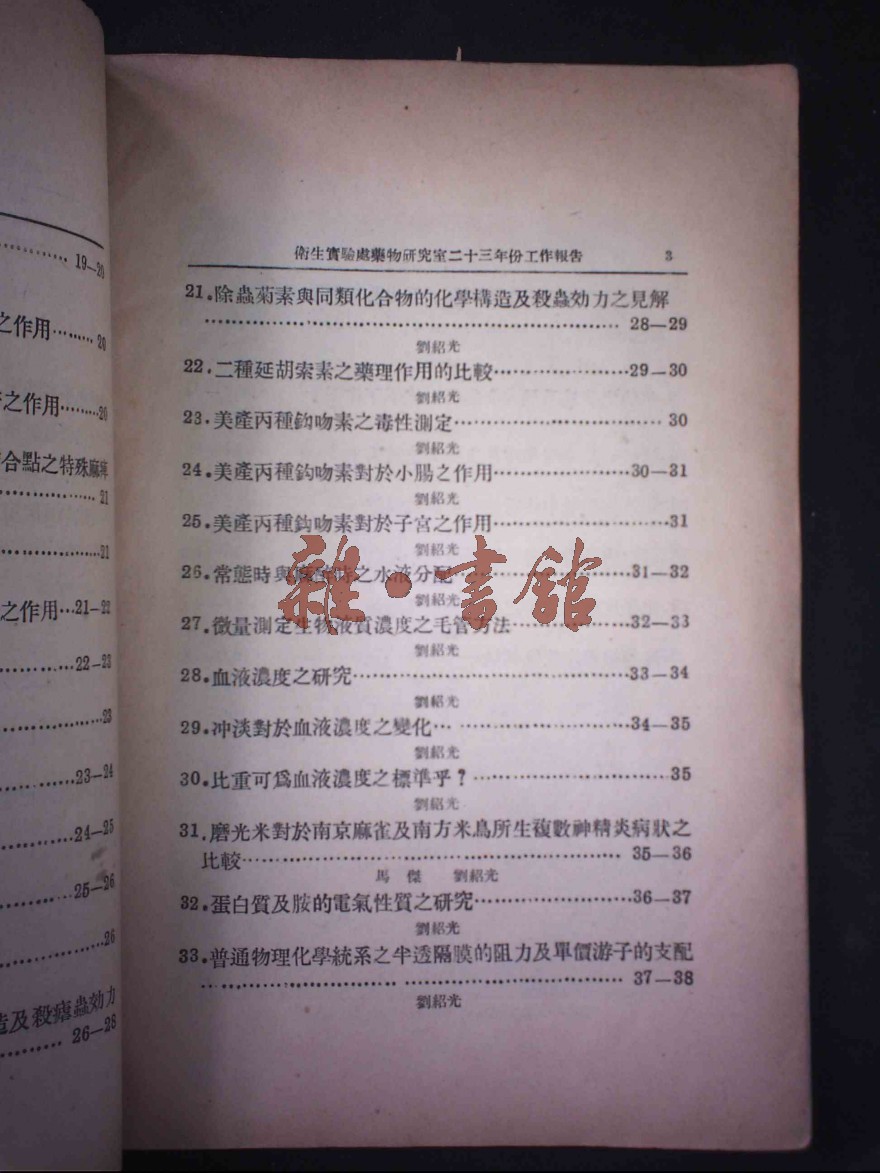 19—20
之作用……… 20
之作用………20
合點之特殊麻痺
………… 21
…………21
之作用…21—22
…………22—23
…………23
…………23—24
…………24—25
…………25—26
…………26
造及殺瘧蟲効力
………… 26—28
衛生實驗處藥物研究室二十三年份工作報告 3
21.除蟲菊素與同類化合物的化學構造及殺蟲効力之見解
………… 28—29
劉紹光
22.二種延胡索素之藥理作用的比較…………29—30
劉紹光
23.美產丙種鈎吻素之毒性測定………… 30
劉紹光
24.美產丙種鈎吻素對於小腸之作用…………30—31
劉紹光
25.美產丙種鈎吻素對於子宮之作用…………31
劉紹光
26.常態時與麻醉時之水液分配…………31—32
劉紹光
27.微量測定生物液質濃度之毛管方法…………32—33
劉紹光
28.血液濃度之研究…………33—34
劉紹光
29.冲淡對於血液濃度之變化…………34—35
劉紹光
30.比重可爲血液濃度之標準乎？…………35
劉紹光
31.磨光米對於南京麻雀及南方米鳥所生複數神精炎病狀之
比較………… 35—36
馬傑 劉紹光
32.蛋白質及胺的電氣性質之研究…………36—37
劉紹光
33.普通物理化學統系之半透隔膜的阻力及單價游子的支配
………… 37—38
劉紹光
雜·書館